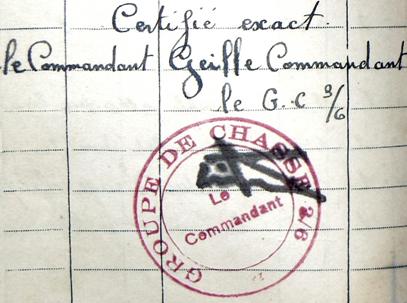 Certifié exact.
le Commandant Geille Commandant
le G.C 3/6
GROUPE DE CHASSE 3/6
Le
Commandant